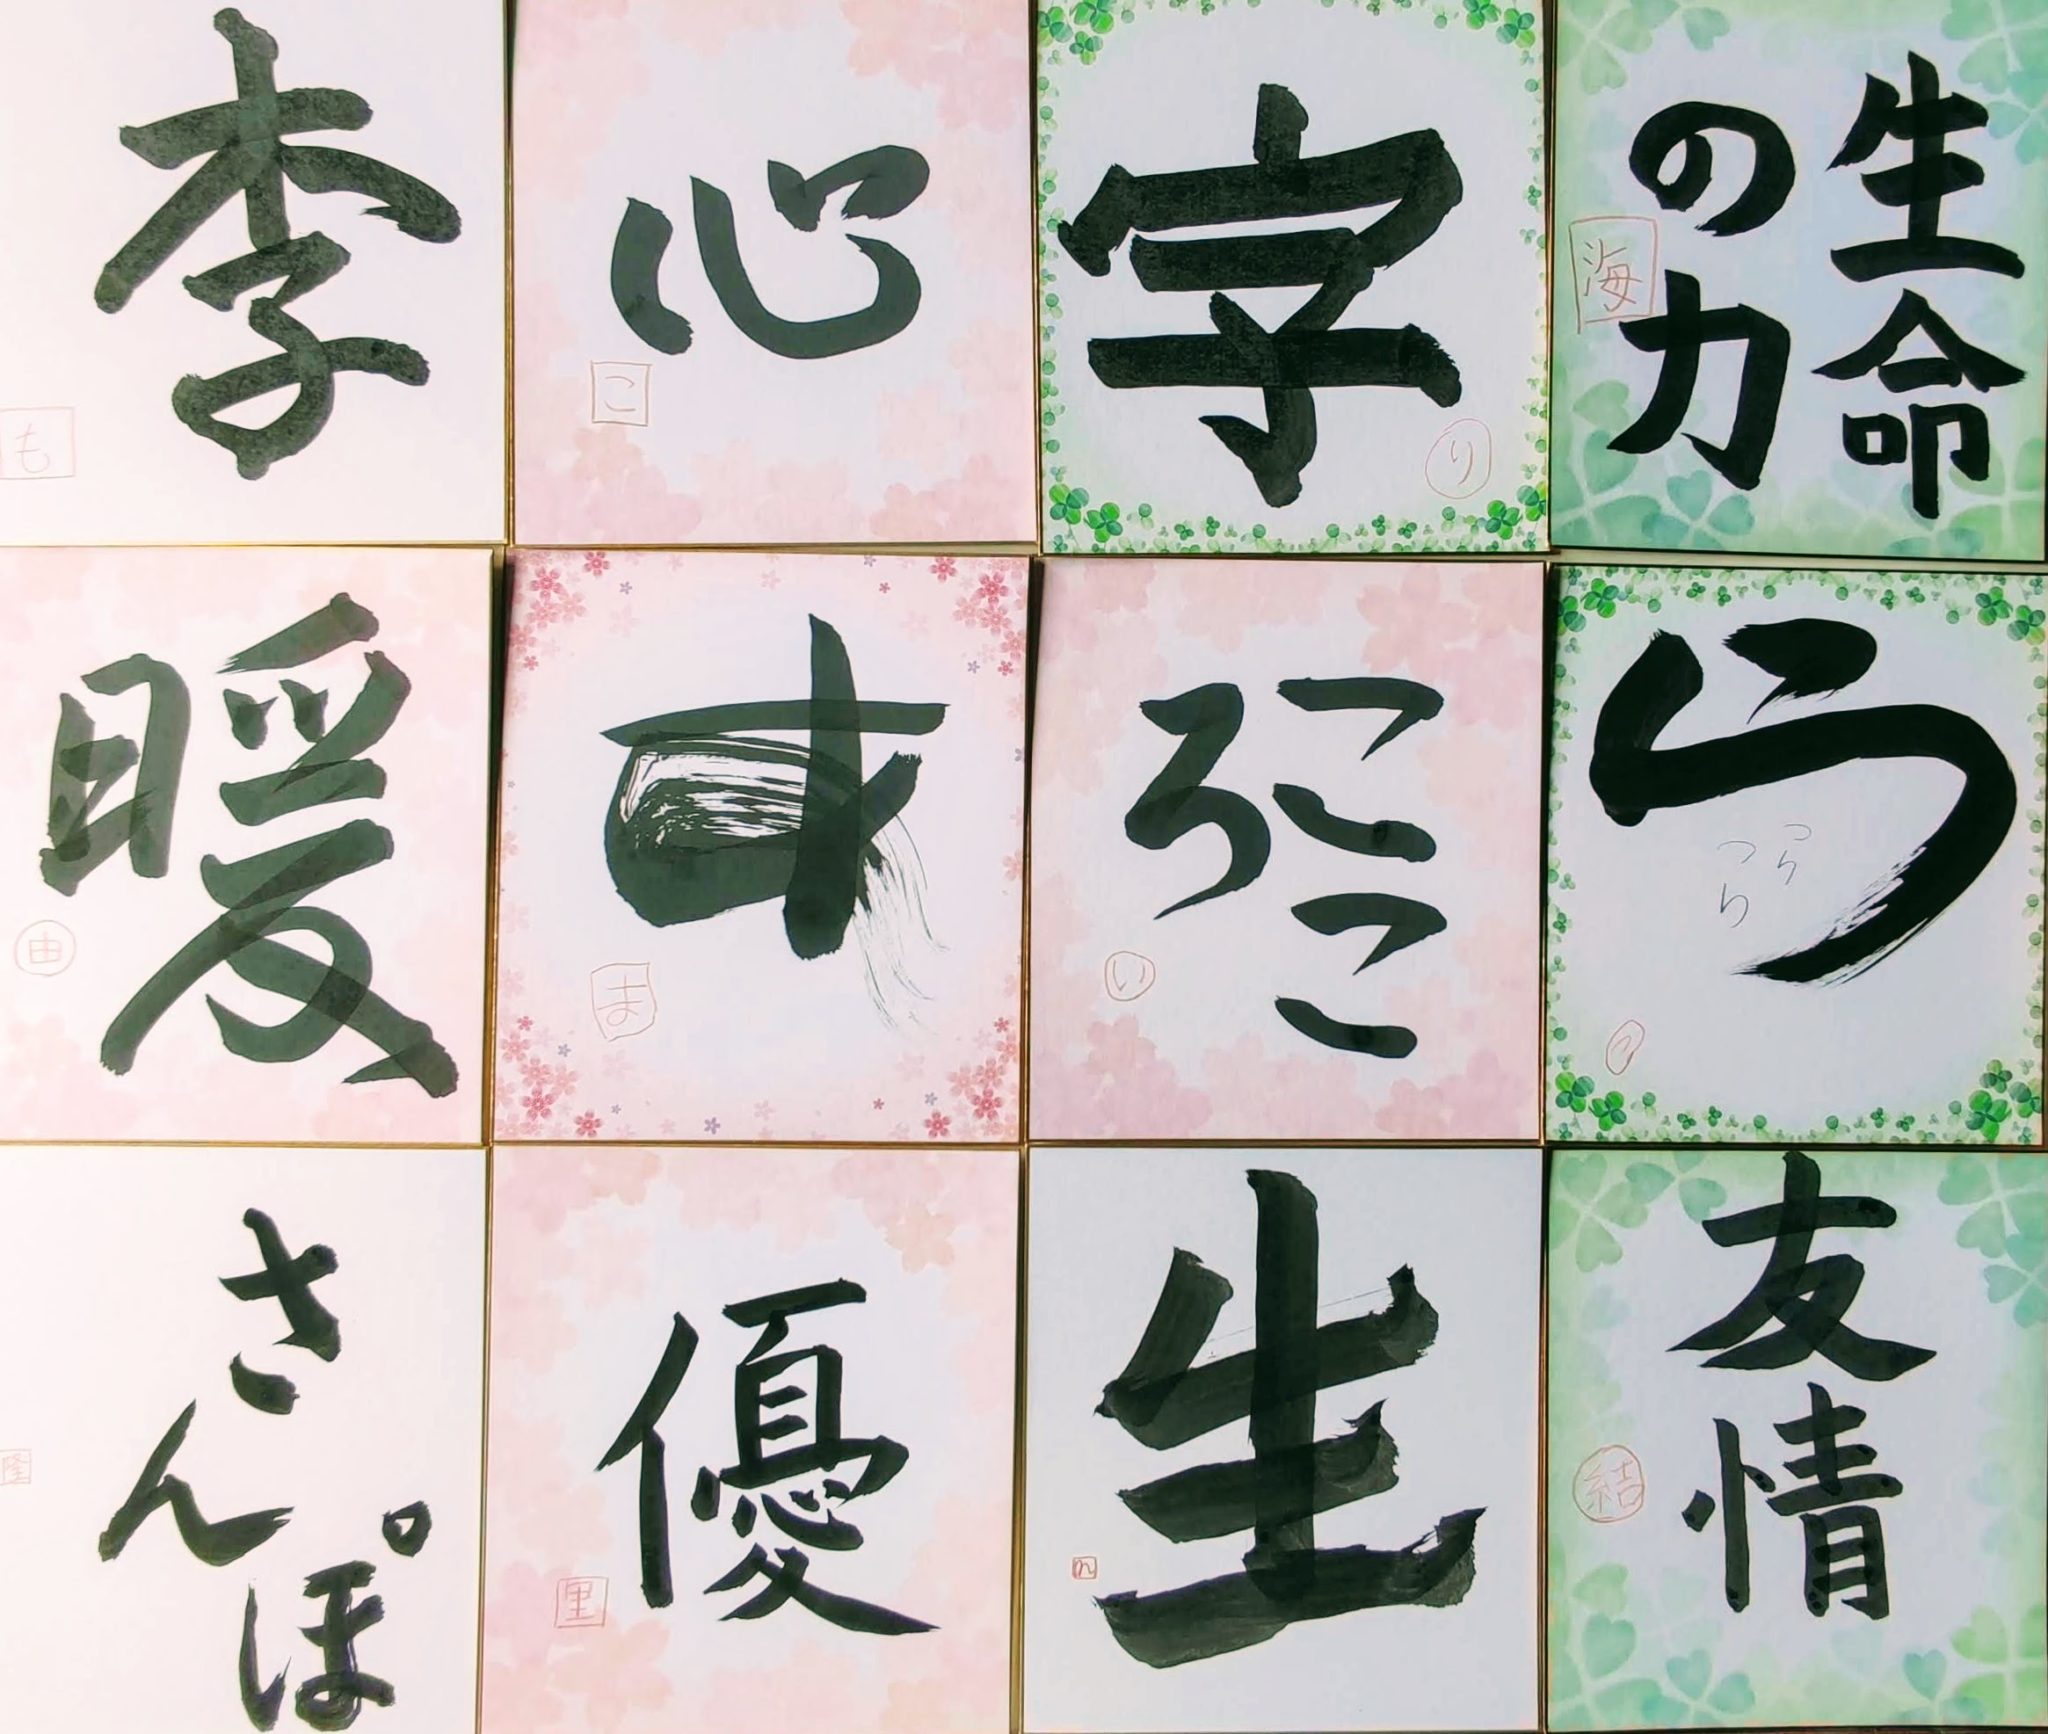 李
も
心
こ
字
り
生命
の力
海
暖
由
ま
ここ
ろ
い
ら
つら
つら
つ
さ
ん
ぽ
隆
優
里
生
ん
友情
結